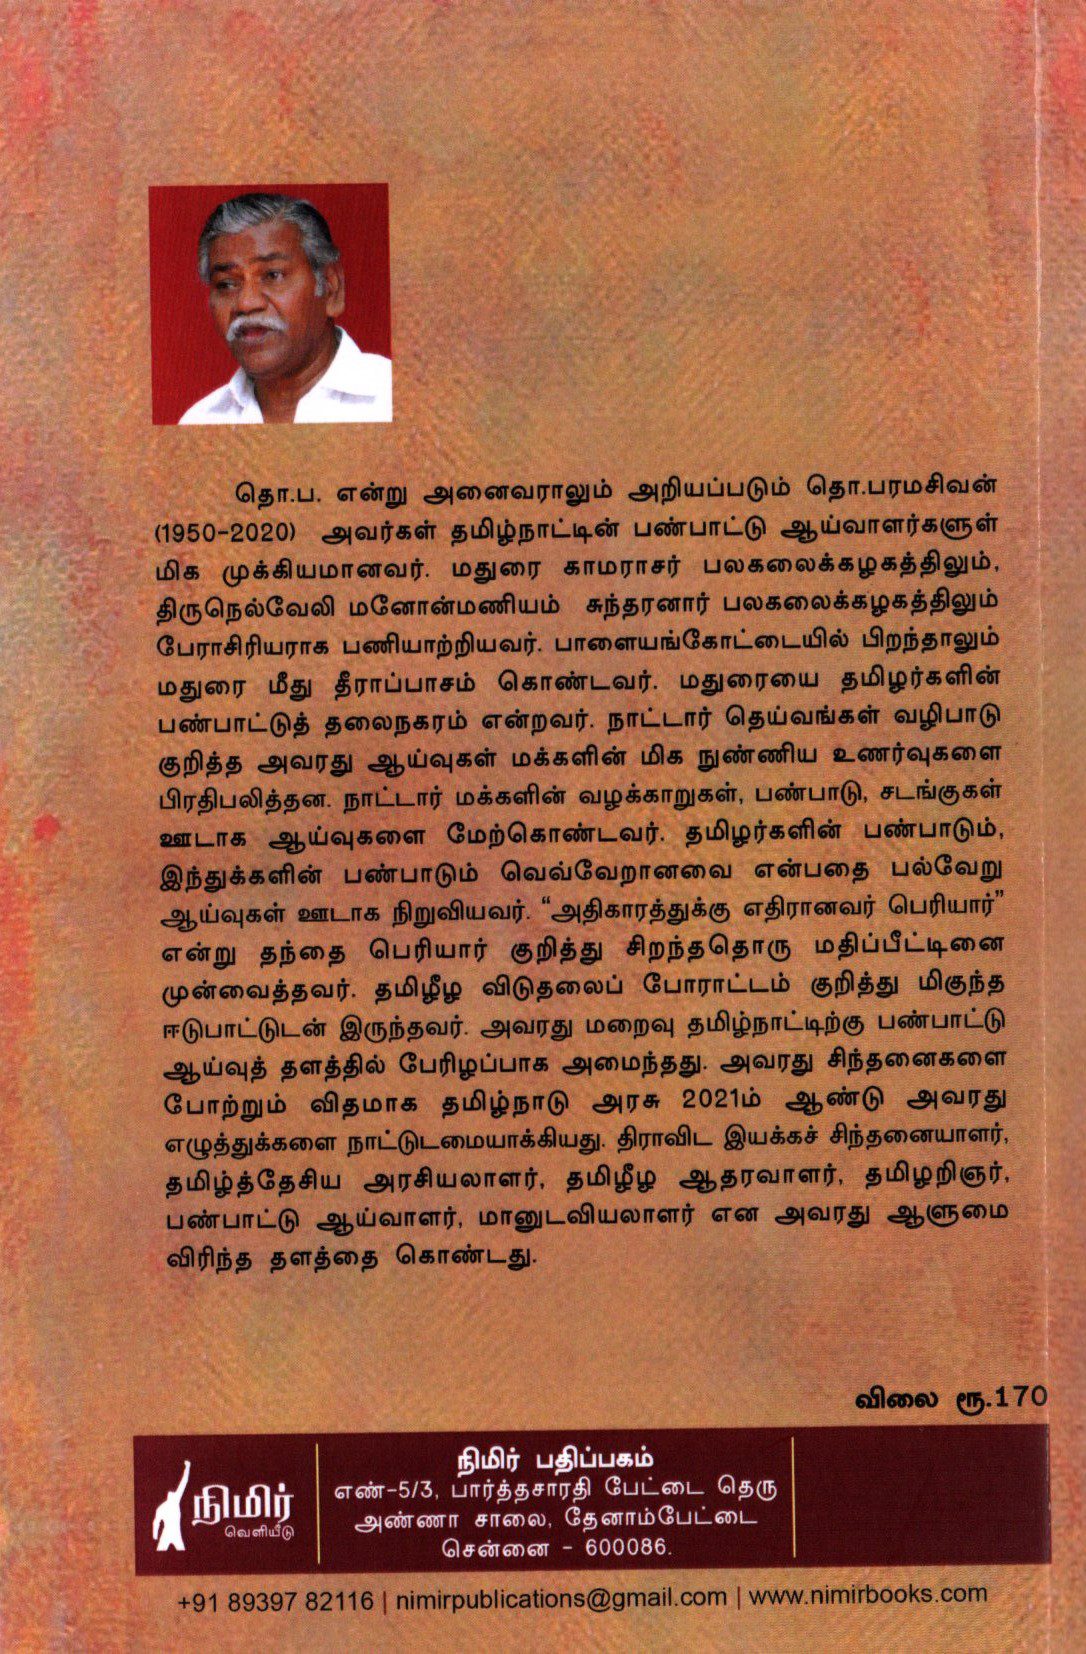 தொ.ப. என்று அனைவராலும் அறியப்படும் தொ.பரமசிவன்
(1950-2020) அவர்கள் தமிழ்நாட்டின் பண்பாட்டு ஆய்வாளர்களுள்
மிக முக்கியமானவர். மதுரை காமராசர் பலகலைக்கழகத்திலும்,
திருநெல்வேலி மனோன்மணியம் சுந்தரனார் பலகலைக்கழகத்திலும்
பேராசிரியராக பணியாற்றியவர். பாளையங்கோட்டையில் பிறந்தாலும்
மதுரை மீது தீராப்பாசம் கொண்டவர். மதுரையை தமிழர்களின்
பண்பாட்டுத் தலைநகரம் என்றவர். நாட்டார் தெய்வங்கள் வழிபாடு
குறித்த அவரது ஆய்வுகள் மக்களின் மிக நுண்ணிய உணர்வுகளை
பிரதிபலித்தன. நாட்டார் மக்களின் வழக்காறுகள், பண்பாடு, சடங்குகள்
ஊடாக ஆய்வுகளை மேற்கொண்டவர். தமிழர்களின் பண்பாடும்,
இந்துக்களின் பண்பாடும் வெவ்வேறானவை என்பதை பல்வேறு
ஆய்வுகள் ஊடாக நிறுவியவர். “அதிகாரத்துக்கு எதிரானவர் பெரியார்”
என்று தந்தை பெரியார் குறித்து சிறந்ததொரு மதிப்பீட்டினை
முன்வைத்தவர். தமிழீழ விடுதலைப் போராட்டம் குறித்து மிகுந்த
ஈடுபாட்டுடன் இருந்தவர். அவரது மறைவு தமிழ்நாட்டிற்கு பண்பாட்டு
ஆய்வுத் தளத்தில் பேரிழப்பாக அமைந்தது. அவரது சிந்தனைகளை
போற்றும் விதமாக தமிழ்நாடு அரசு 2021ம் ஆண்டு அவரது
எழுத்துக்களை நாட்டுடமையாக்கியது. திராவிட இயக்கச் சிந்தனையாளர்,
தமிழ்த்தேசிய அரசியலாளர், தமிழீழ ஆதரவாளர், தமிழறிஞர்,
பண்பாட்டு ஆய்வாளர், மானுடவியலாளர் என அவரது ஆளுமை
விரிந்த தளத்தை கொண்டது.
விலை ரூ.170
நிமிர்
வெளியீடு
நிமிர் பதிப்பகம்
எண்-5/3, பார்த்தசாரதி பேட்டை தெரு
அண்ணா சாலை, தேனாம்பேட்டை
சென்னை - 600086.
+91 89397 82116 | nimirpublications@gmail.com | www.nimirbooks.com